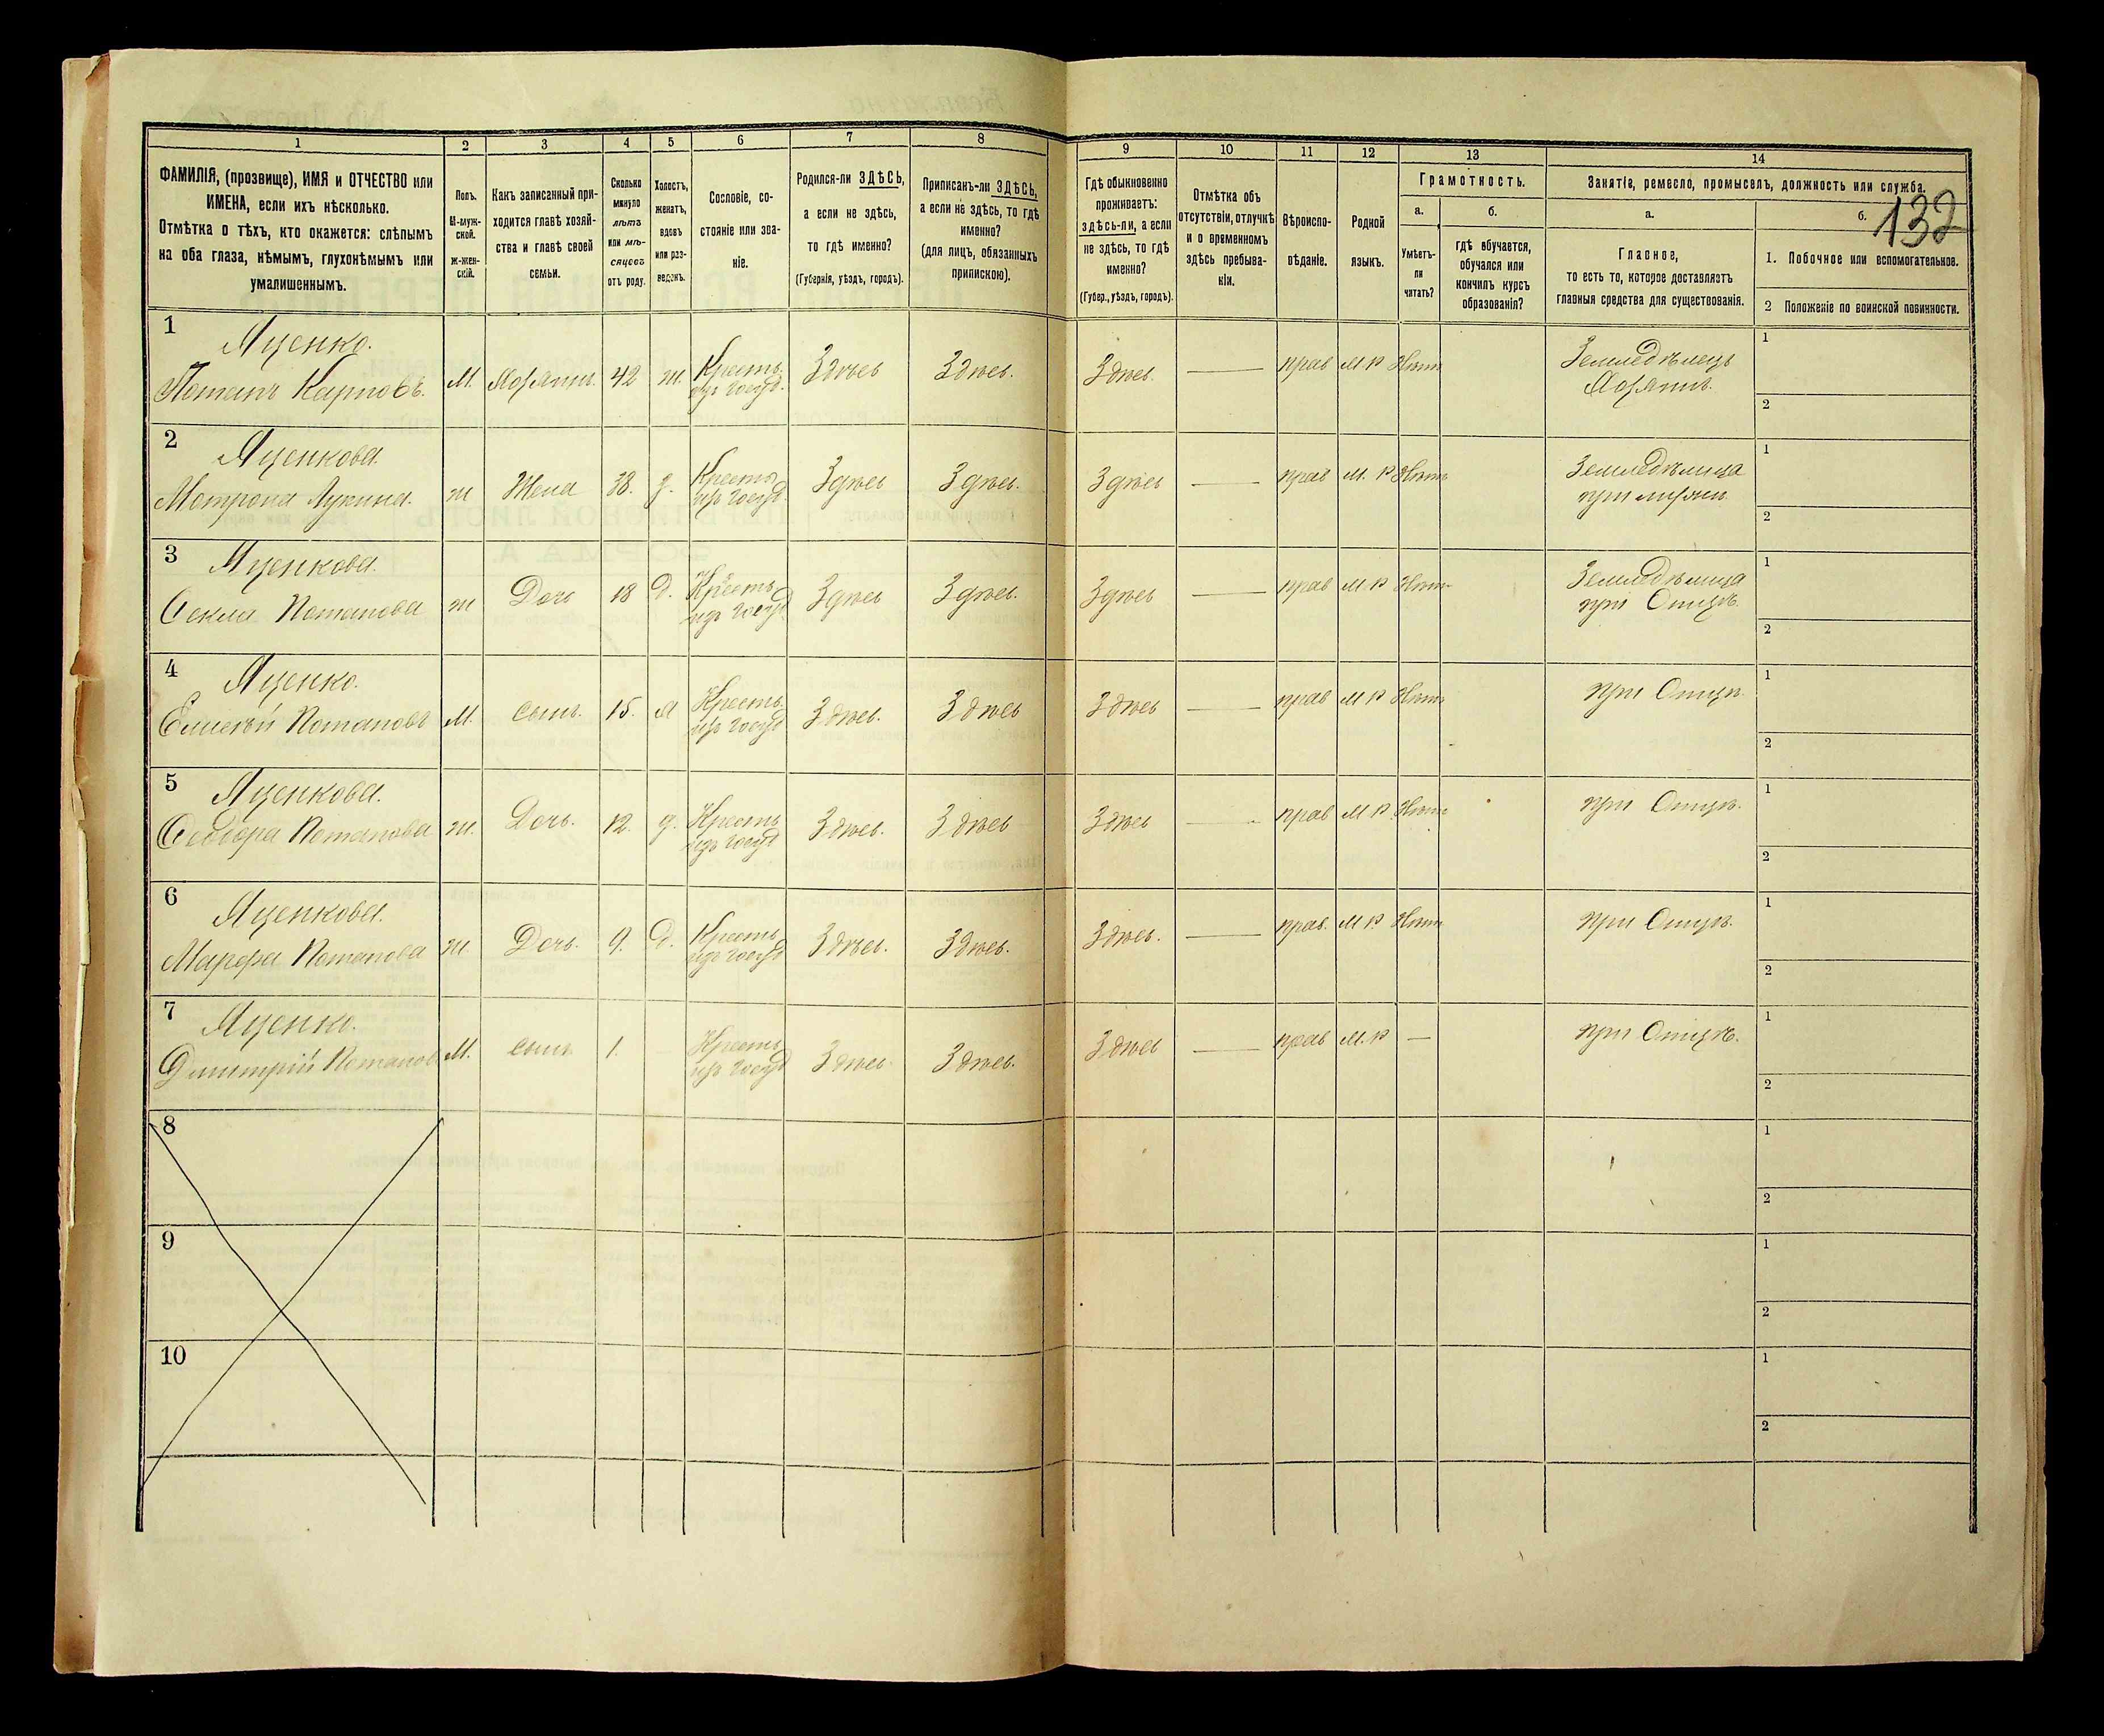 132
1 2 3 4 5 6 7 8 9 10 11 12 13 14
ФАМИЛІЯ, (прозвище), ИМЯ и ОТЧЕСТВО или
ИМЕНА, если ихъ нѣсколько.
Отмѣтка о тѣхъ, кто окажется: слѣпымъ
на оба глаза, нѣмымъ, глухонѣмымъ или
умалишеннымъ.
Полъ.
М-муж-
ской.
ж-жен-
скій.
Какъ записанный при-
ходится главѣ хозяй-
ства и главѣ своей
семьи.
Сколько
минуло
лѣтъ
или мѣ-
сяцевъ
отъ роду.
Холостъ,
женатъ,
вдовъ
или раз-
веденъ.
Сословіе, со-
стояніе или зва-
ніе.
Родился-ли ЗДѢСЬ,
а если не здѣсь,
то гдѣ именно?
(Губернія, уѣздъ, городъ).
Приписанъ-ли ЗДѢСЬ,
а если не здѣсь, то гдѣ
именно?
(для лицъ, обязанныхъ
припискою).
Гдѣ обыкновенно
проживаетъ:
здѣсь-ли, а если
не здѣсь, то гдѣ
именно?
(Губер., уѣздъ, городъ).
Отмѣтка объ
отсутствіи, отлучкѣ
и о временномъ
здѣсь пребыва-
ніи.
Вѣроиспо-
вѣданіе.
Родной
языкъ.
Грамотность.
а.
Умѣетъ-
ли
читать?
б.
гдѣ обучается,
обучался или
кончилъ курсъ
образованія?
Занятіе, ремесло, промыселъ, должность или служба.
а.
Главное,
то есть то, которое доставляетъ
главныя средства для существованія.
б.
1. Побочное или вспомогательное.
2 Положеніе по воинской повинности.
1 Яценко. 1
Потапъ Карповъ. М. Хозяинъ 42 ж. Крестъ. Здѣсь Здѣсь. Здѣсь. — прав М. Р Нѣтъ Земледѣлецъ
изъ госуд. Хозяинъ. 2
2 Яценкова. 1
Мотрона Лукина. ж Жена 38. з. Крестъ Здѣсь Здѣсь. Здѣсь — прав М. Р Нѣтъ Земледѣлица
изъ госуд. при мужи. 2
3 Яценкова. 1
Ѳекла Потапова ж Дочь 18 д. Крестъ Здѣсь Здѣсь. Здѣсь — прав М. Р Нѣтъ Земледѣлица
изъ госуд при Отцѣ. 2
4 Яценко. 1
Елисѣй Потаповъ М. сынъ. 15. Крестъ. Здѣсь. Здѣсь Здѣсь — прав М Р Нѣтъ при Отцѣ
изъ госуд 2
5 Яценкова. 1
Ѳеодора Потапова ж. Дочь. 12. д. Крестъ Здѣсь. Здѣсь Здѣсь — прав М Р Нѣтъ при Отцѣ.
изъ госуд 2
6 Яценкова. 1
Марфа Потапова ж. Дочь. 9. д. Крестъ Здѣсь. Здѣсь. Здѣсь. — прав. М. Р Нѣтъ при Отцѣ.
изъ госуд 2
7 Яценко. 1
Дмитрій Потапов М. сынъ 1. Крестъ Здѣсь. Здѣсь. Здѣсь — прав М. Р — при Отцѣ.
изъ госуд 2
8 1
2
9 1
2
10 1
2